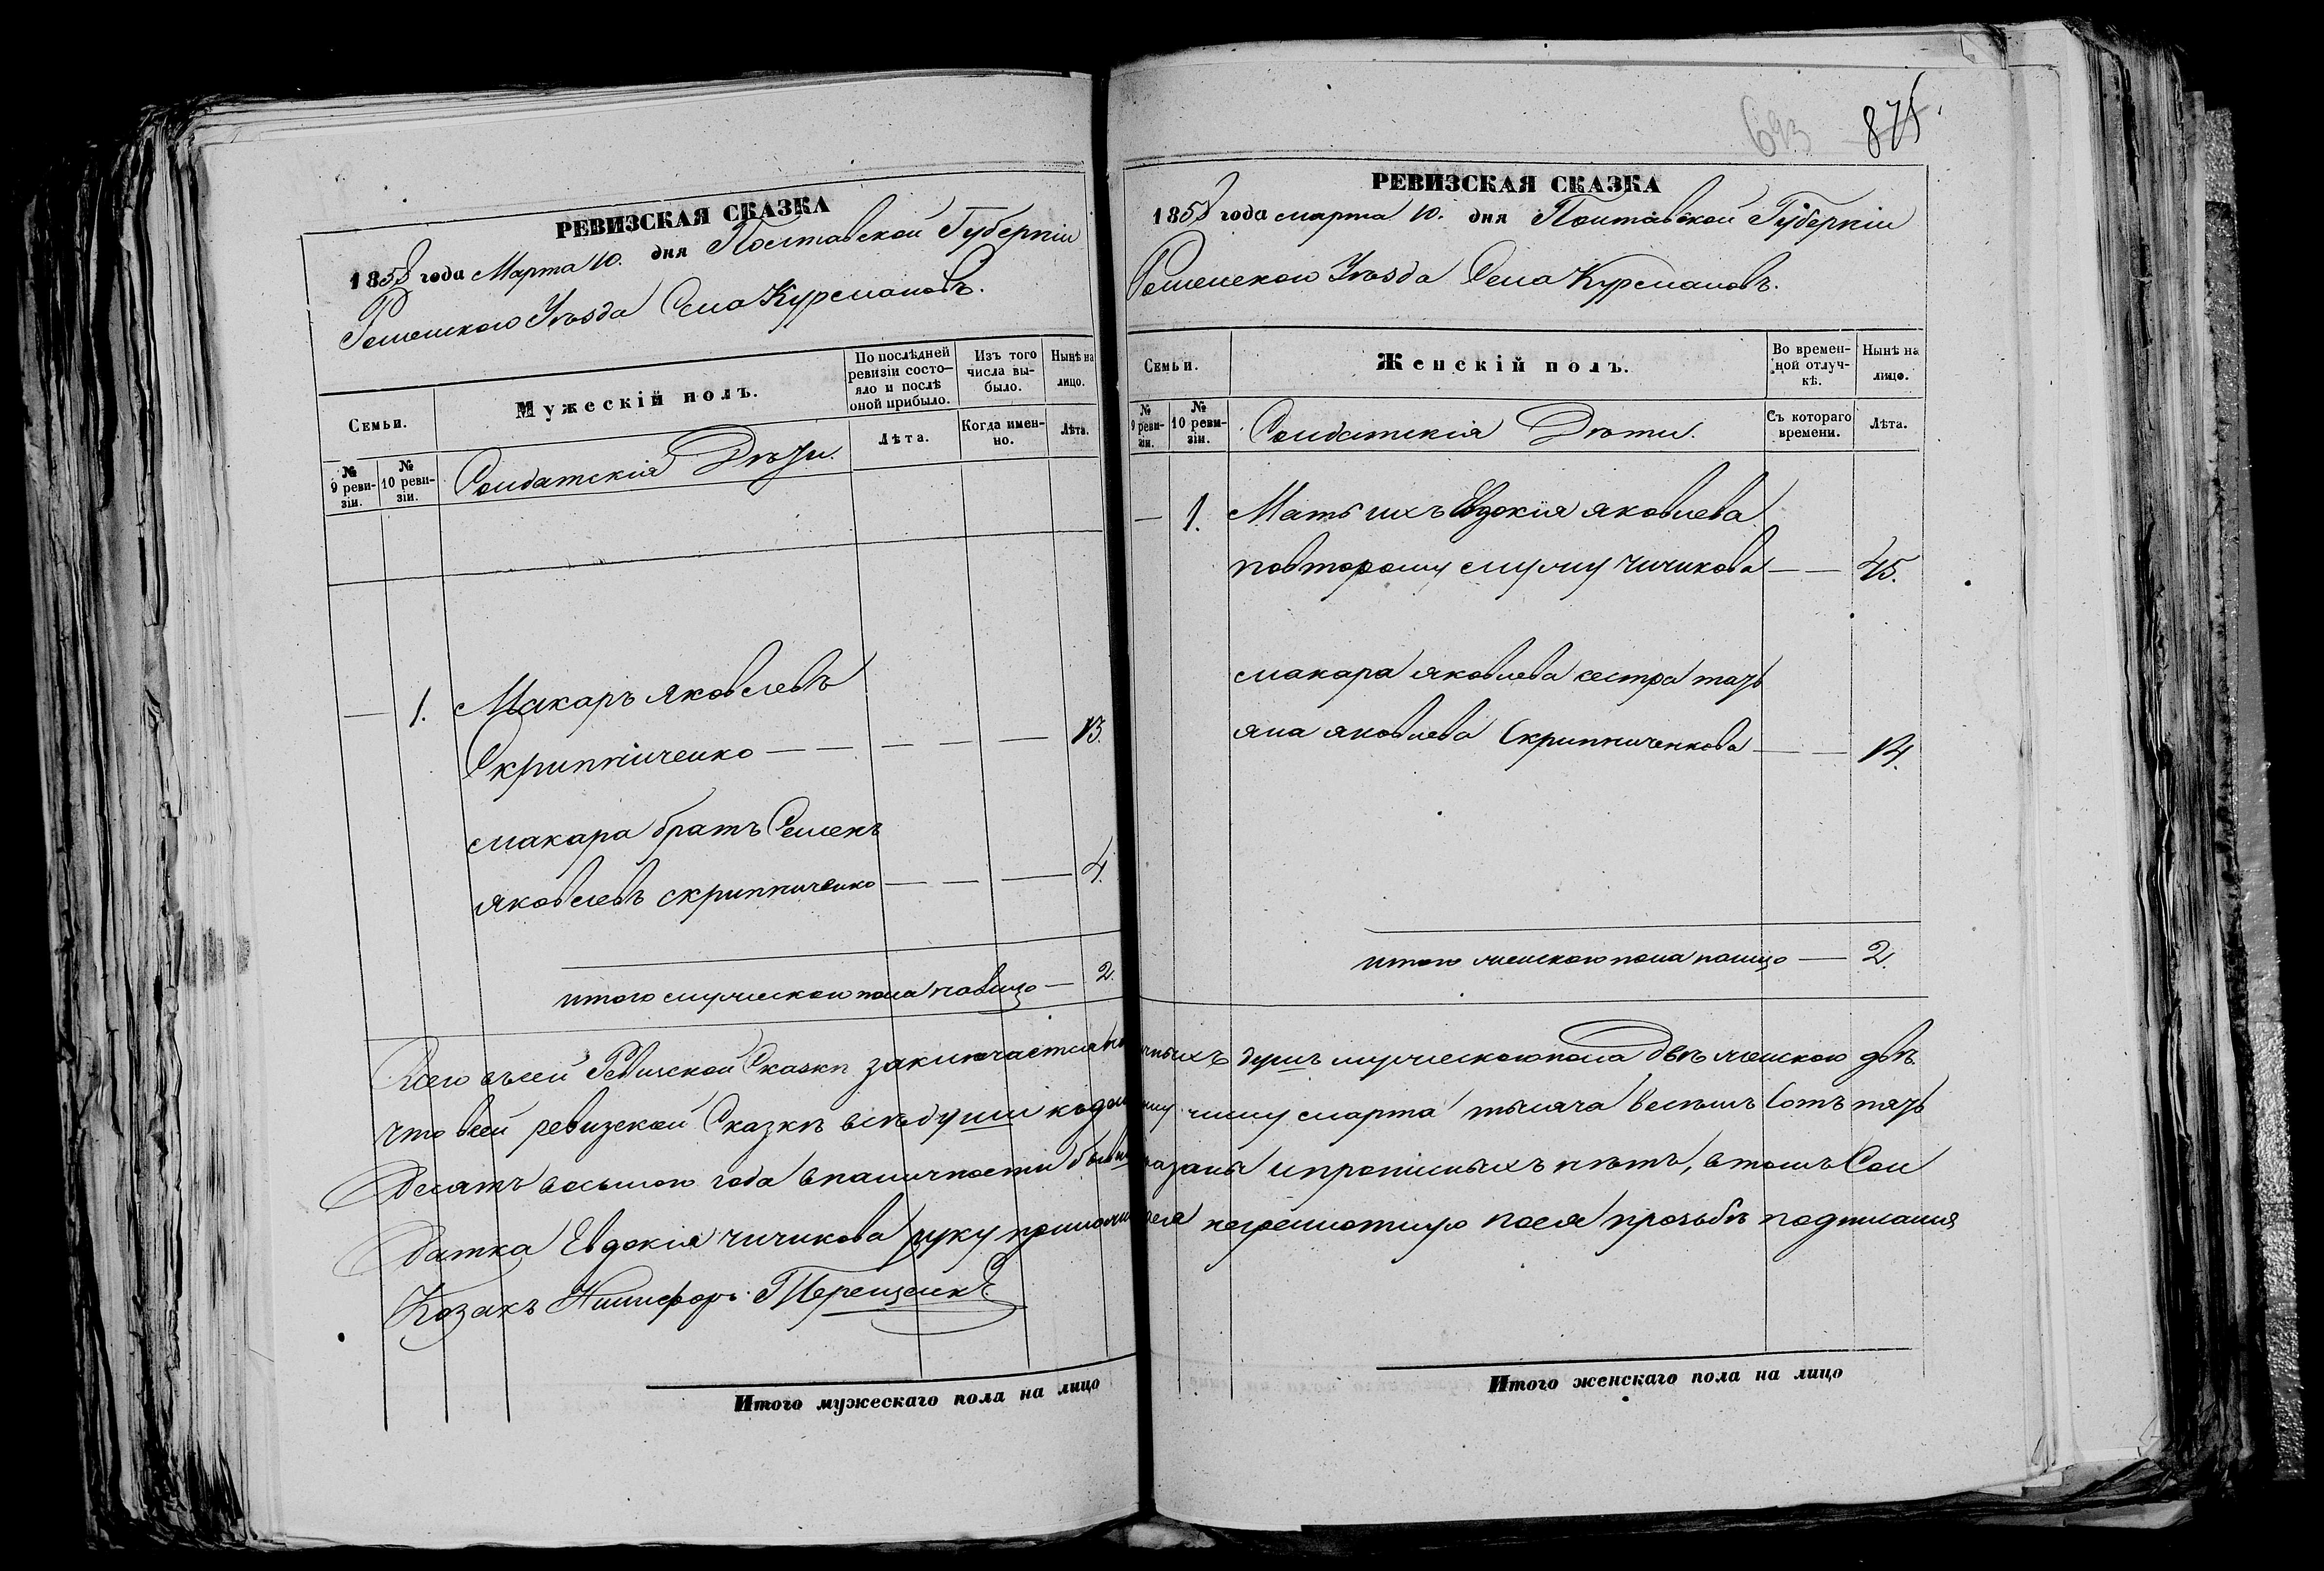 РЕВИЗСКАЯ СКАЗКА
1858 года Марта 10. дня Полтавской Губерніи
Роменского Уѣзда Села Курмановъ.
Семьи.
Мужескій полъ.
По послѣдней ревизіи состо-
яло и послѣ
оной прибыло.
Изъ того
числа вы-
было.
Нынѣ на
лицо.
№
9 реви-
зіи.
№
10 реви-
зіи.
Солдатскія Дѣти.
Лѣта.
Когда имен-
но.
Лѣта.
— 1. Макаръ яковлевъ
Скрипниченко — — — — — 13.
макара братъ Семенъ
яковлевъ скрипниченко — — — 4.
итого мужеского пола налицо — 2.
РЕВИЗСКАЯ СКАЗКА
693 875
1858 года марта 10. дня Полтавской Губерніи
Роменского Уѣзда Села Курмановъ.
Семьи.
Женскій полъ.
Во времен-
ной отлуч-
кѣ.
Нынѣ на
лицо.
№
9 реви-
зіи.
№
10 реви-
зіи.
Солдатскія Дѣти.
Съ котораго
времени.
Лѣта.
— 1. Мать ихъ Евдокія яковлева
повторому мужу чичикова — — 45.
макара яковлева сестра тать
яна яковлева Скрипниченкова — — 14.
итого женского пола налицо — 2.
Всего въсей Ревизской Сказки заключается наличныхъ душъ мужескогопола двѣ женского двѣ
что всей ревизской Сказкѣ всѣ души кодесятому числу марта тысяча восемъ Сотъ пять
Десятъ восьмого года вналичности бывш показаны ипрописныхъ нѣтъ, втомъ Сол
датка Евдокія чичикова руку приложила неграмотную поея прозьбѣ подписался
Козакъ Никифоръ Терещенко
Итого мужескаго пола на лицо
Итого женскаго пола на лицо